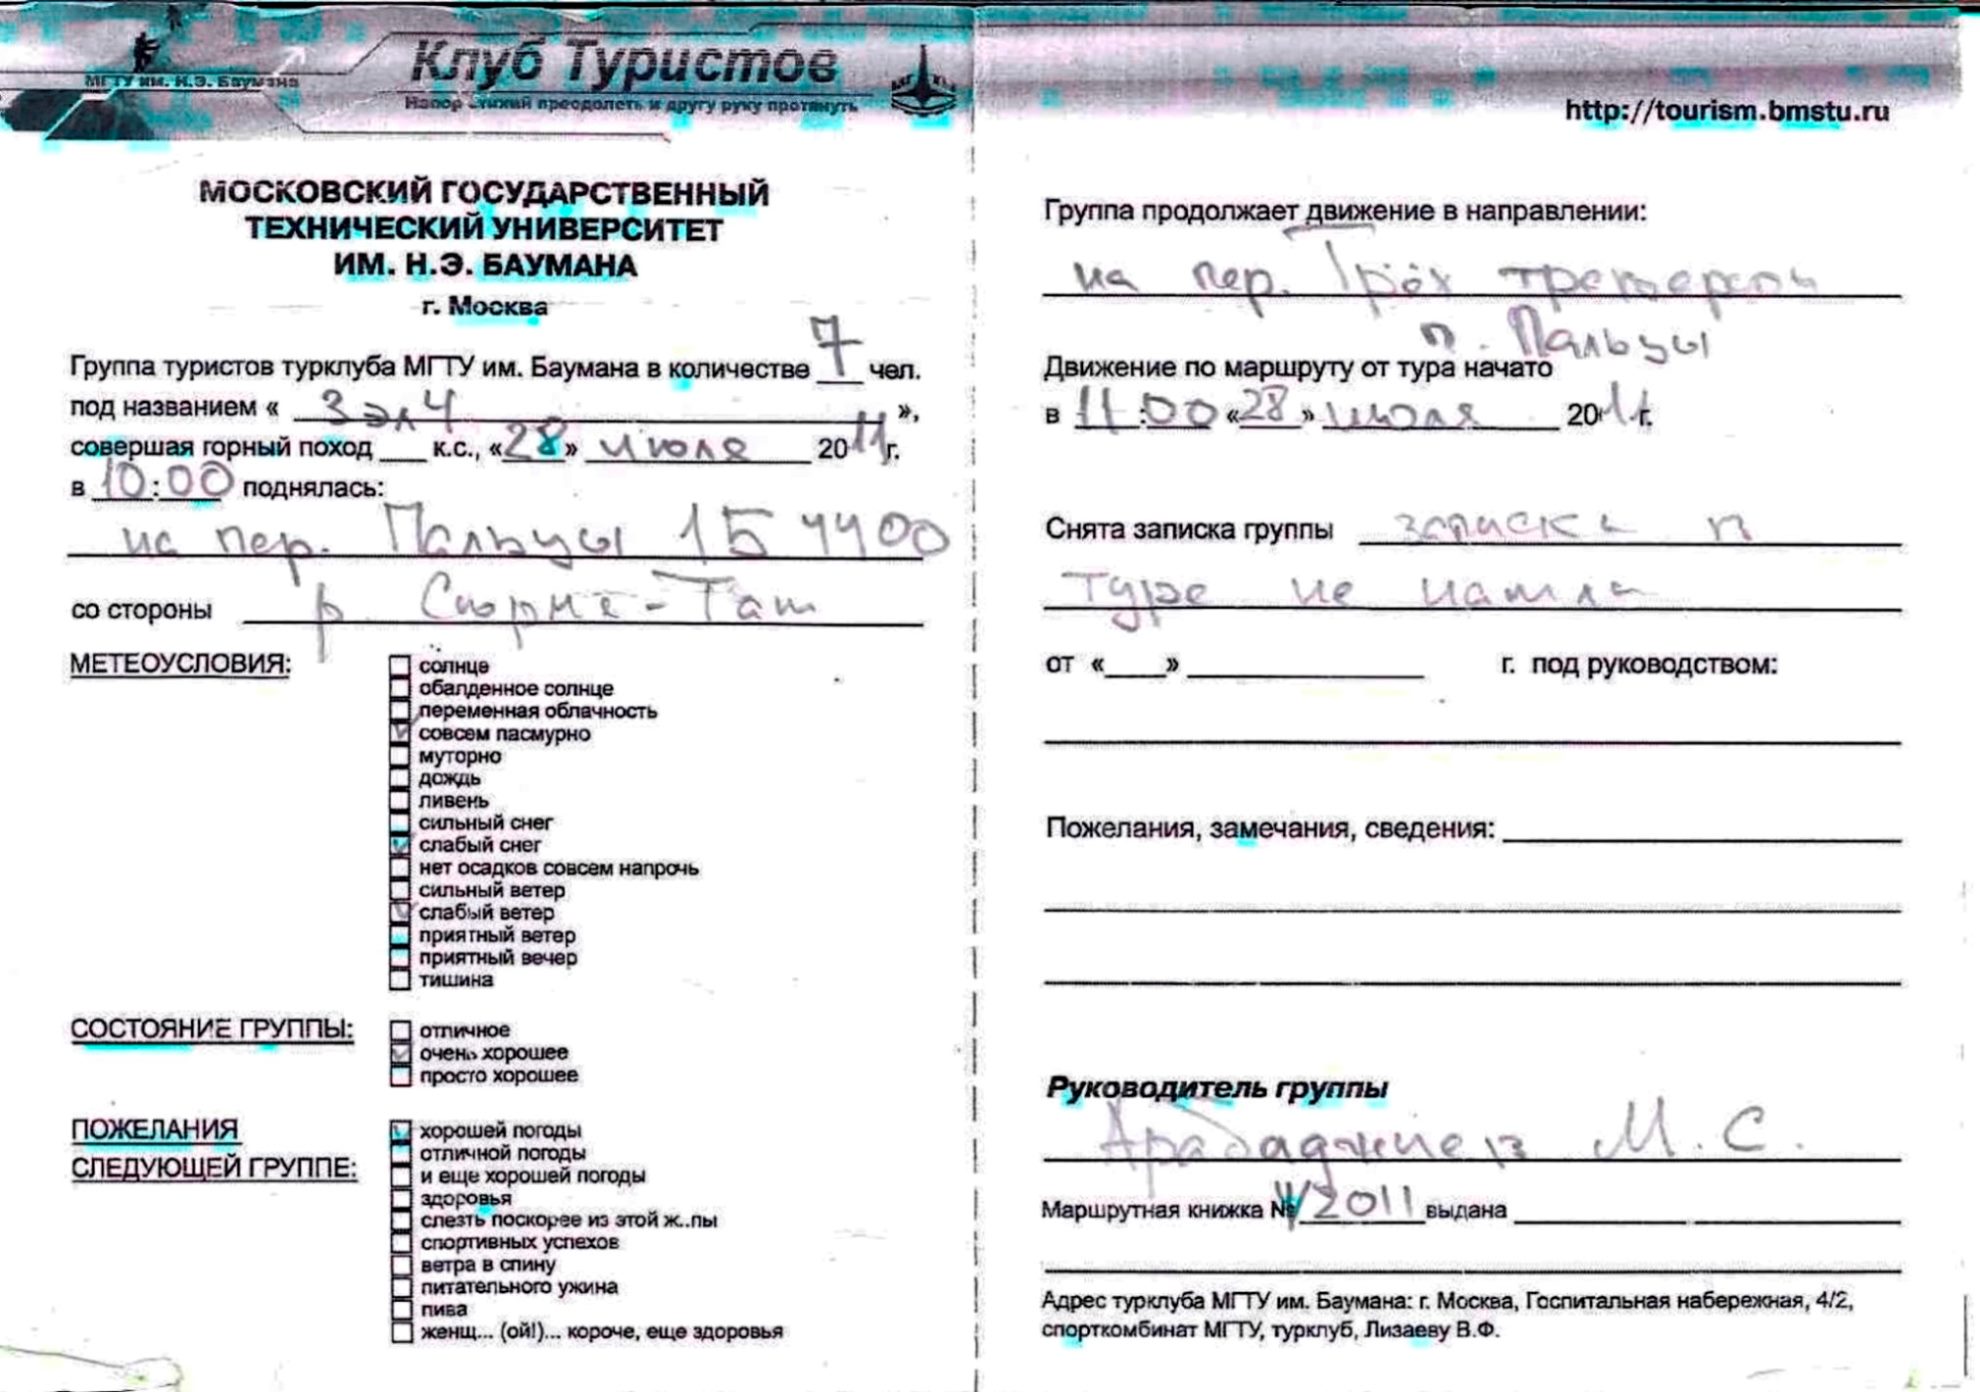 МГТУ им. Н.Э. Баумана
Клуб Туристов
Напор стихий преодолеть и другу руку протянуть
МОСКОВСКИЙ ГОСУДАРСТВЕННЫЙ
ТЕХНИЧЕСКИЙ УНИВЕРСИТЕТ
ИМ. Н.Э. БАУМАНА
г. Москва
Группа туристов турклуба МГТУ им. Баумана в количестве 7 чел.
под названием « »,
совершая горный поход ___ к.с., «28» июля 2011г.
в 10:00 поднялась:
на пер. Пальцы 1Б 4400
со стороны р
МЕТЕОУСЛОВИЯ:
солнце
обалденное солнце
переменная облачность
совсем пасмурно
муторно
дождь
ливень
сильный снег
слабый снег
нет осадков совсем напрочь
сильный ветер
слабый ветер
приятный ветер
приятный вечер
тишина
СОСТОЯНИЕ ГРУППЫ:
отличное
очень хорошее
просто хорошее
ПОЖЕЛАНИЯ
СЛЕДУЮЩЕЙ ГРУППЕ:
хорошей погоды
отличной погоды
и еще хорошей погоды
здоровья
слезть поскорее из этой ж..пы
спортивных успехов
ветра в спину
питательного ужина
пива
женщ... (ой!)... короче, еще здоровья
http://tourism.bmstu.ru
Группа продолжает движение в направлении:
на пер. Трёх
п. Пальцы
Движение по маршруту от тура начато
в 11:00 «28» июля 2011г.
Снята записка группы записка
туре не нашли
от «____» ________ г. под руководством:
Пожелания, замечания, сведения:
Руководитель группы
Арабаджиев М.С.
Маршрутная книжка № /2011 выдана
Адрес турклуба МГТУ им. Баумана: г. Москва, Госпитальная набережная, 4/2,
спорткомбинат МГТУ, турклуб, Лизаеву В.Ф.